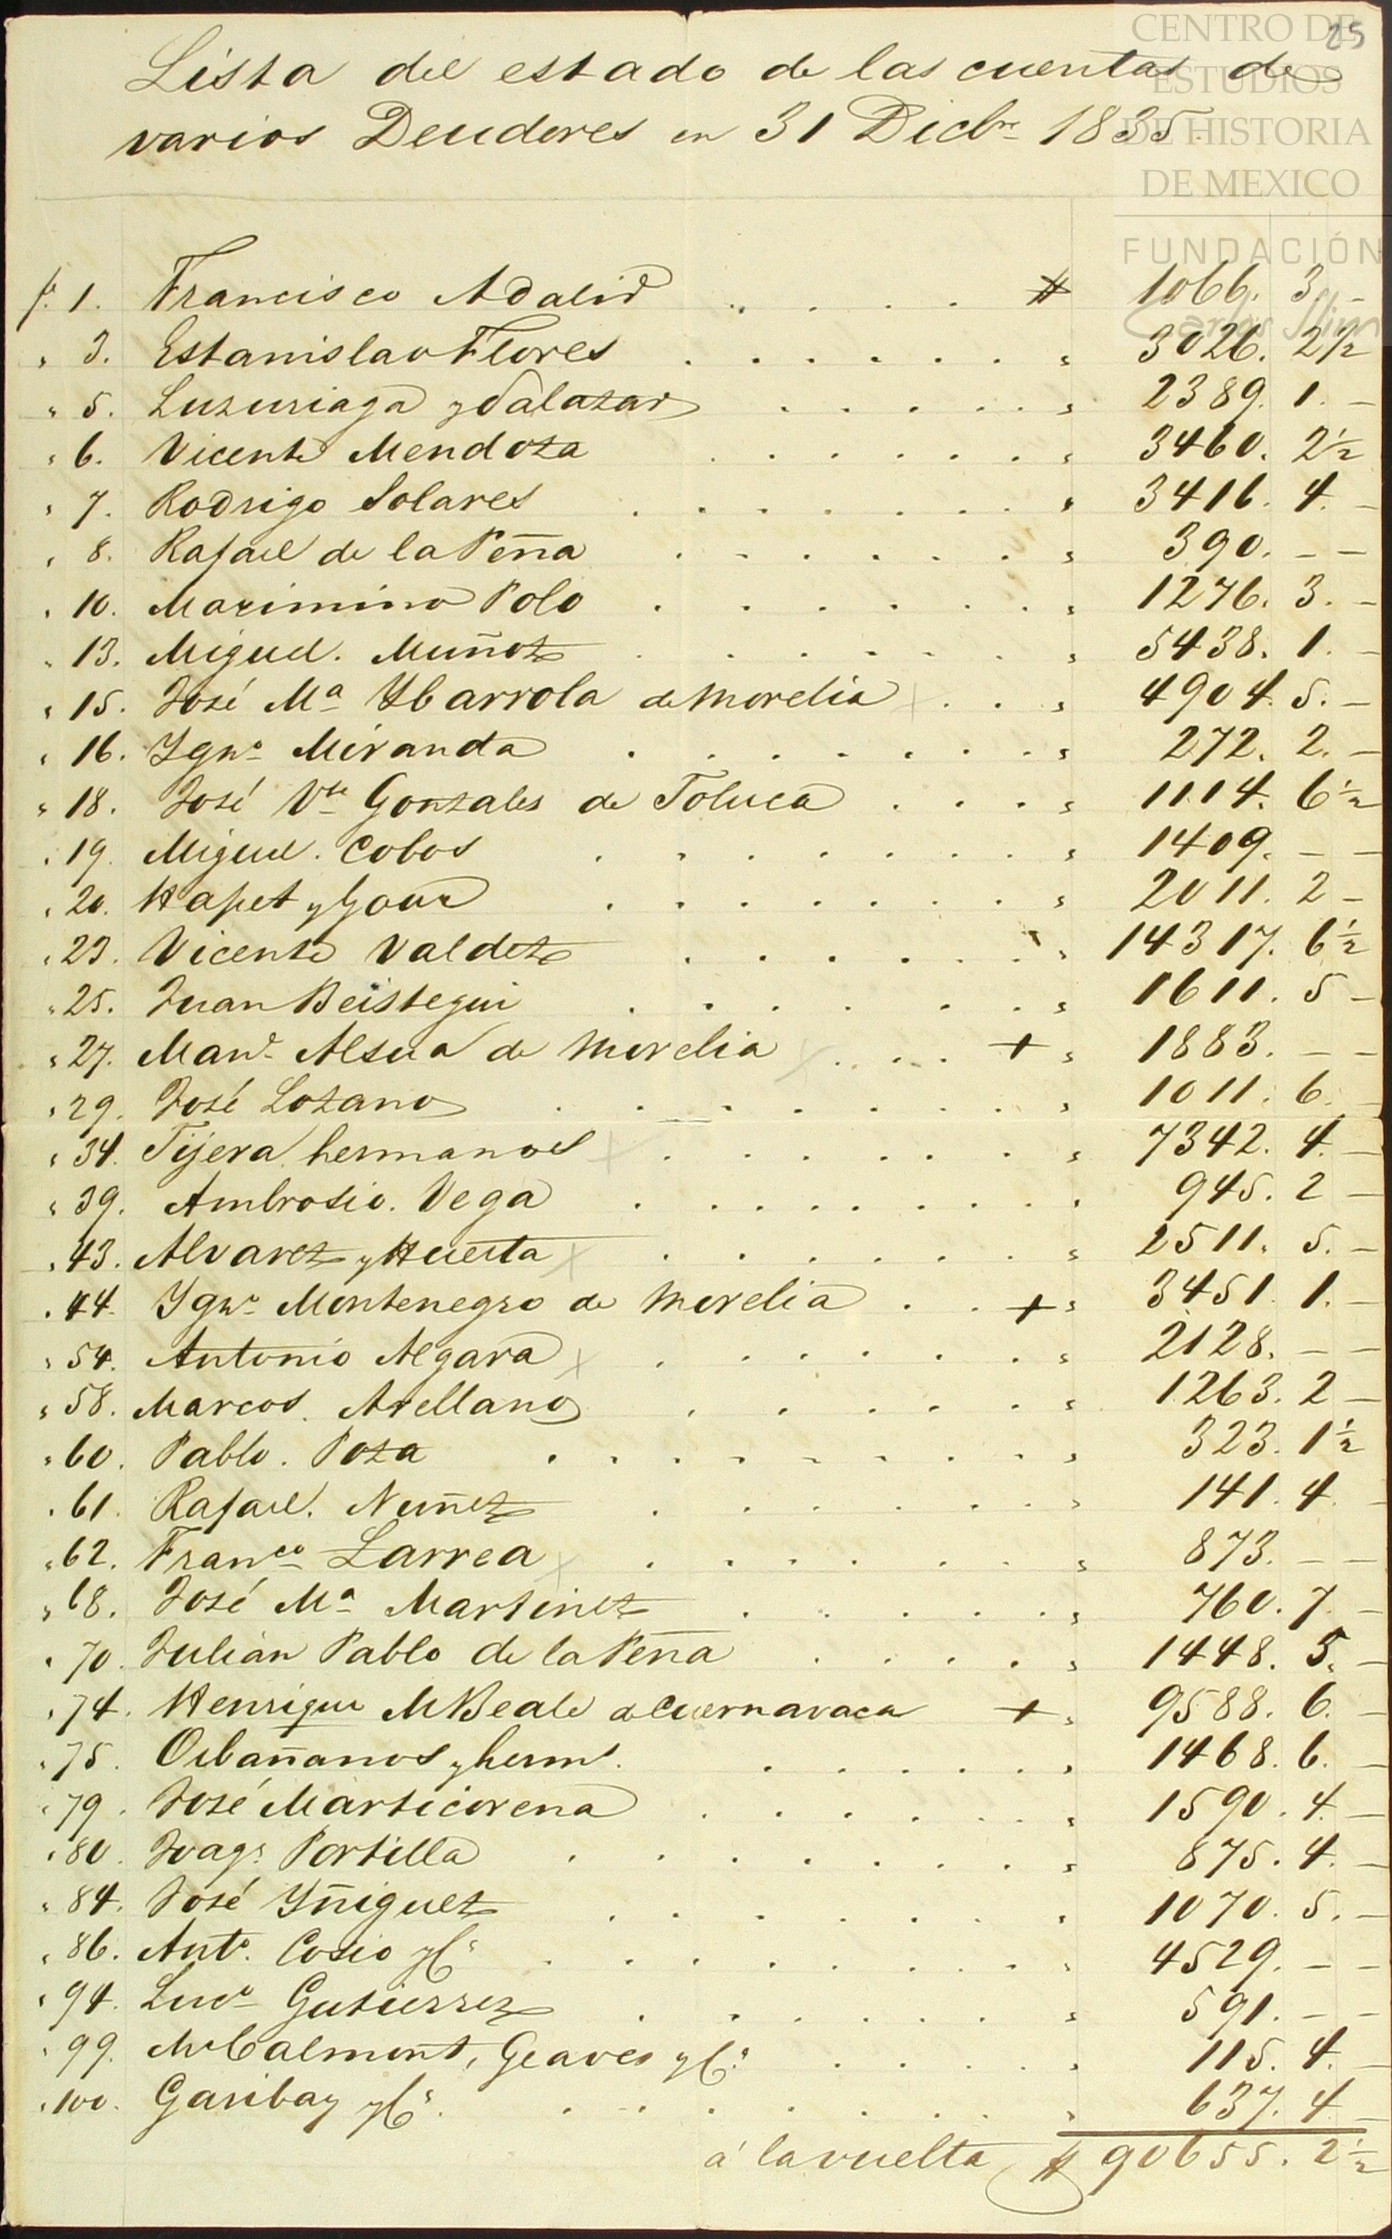 25
CENTRO DE
ESTUDIOS
DE HISTORIA
DE MEXICO
FUNDACIÓN
Carlos Slim
Lista del estado de las cuentas de
varios Deudores en 31 Dicbre 1835.
f. 1. Francisco Adalid . . . . $ 1066. 3. -
" 3. Estanislao Flores . . . . . . " 3026. 2½
" 5. Luzuriaga y Salazar . . . . . " 2389. 1. -
" 6. Vicente Mendoza . . . . . . " 3460. 2½
" 7. Rodrigo Solares . . . . . . . " 3416. 4. -
" 8. Rafael de la Peña . . . . . . " 390. - -
" 10. Maximino Polo . . . . . . . " 1276. 3. -
" 13. Miguel. Muñoz . . . . . . " 5438. 1. -
" 15. José Ma Ybarrola de Morelia . . . " 4904. 5. -
" 16. Ygno Miranda . . . . . . . " 272. 2. -
" 18. José Vte Gonzales de Toluca . . . . " 1114. 6½
" 19. Miguel. Cobos . . . . . . . . " 1409. - -
" 20. Hapet y Gour . . . . . . . . " 2011. 2 -
" 23. Vicente Valdez . . . . . . . " 14317. 6½
" 25. Juan Beistegui . . . . . . . " 1611. 5 -
" 27. Manl Alsua de Morelia . . . + " 1883. - -
" 29. José Lozano . . . . . . . . " 1011. 6. -
" 34. Tijera hermanos . . . . . . . " 7342. 4. -
" 39. Ambrosio. Vega . . . . . . . . " 945. 2 -
" 43. Alvarez y Huerta . . . . . . " 2511. 5. -
" 44. Ygno Montenegro de Morelia . . + " 3451 1. -
" 54. Antonio Algara . . . . . . " 2128. - -
" 58. Marcos. Arellano . . . . . . " 1263. 2 -
" 60. Pablo. Poza . . . . . . . . " 323. 1½
" 61. Rafael. Nuñez . . . . . . " 141. 4 -
" 62. Franco Larrea . . . . . . . " 873. - -
" 68. José Ma Martinez . . . . . " 760. 7 -
" 70. Julian Pablo de la Peña . . . . " 1448. 5. -
" 74. Henrique McBeale de Cuernavaca + " 9588. 6. -
" 75. Orbañanos y herms. . . . . . . " 1468. 6. -
" 79. José Marticorena . . . . . . " 1590. 4. -
" 80. Joaqn Portilla . . . . . . . " 875. 4. -
" 84. José Yñiguez . . . . . . . " 1070. 5. -
" 86. Anto. Cosio y Ca . . . . . . . . " 4529. - -
" 94. Luco Gutierrez . . . . . . " 591. - -
" 99. McCalmont, Geaves y Ca . . . . " 115. 4. -
" 100. Garibay y Ca. . . . . . . . " 637. 4 -
á la vuelta $ 90655. 2½